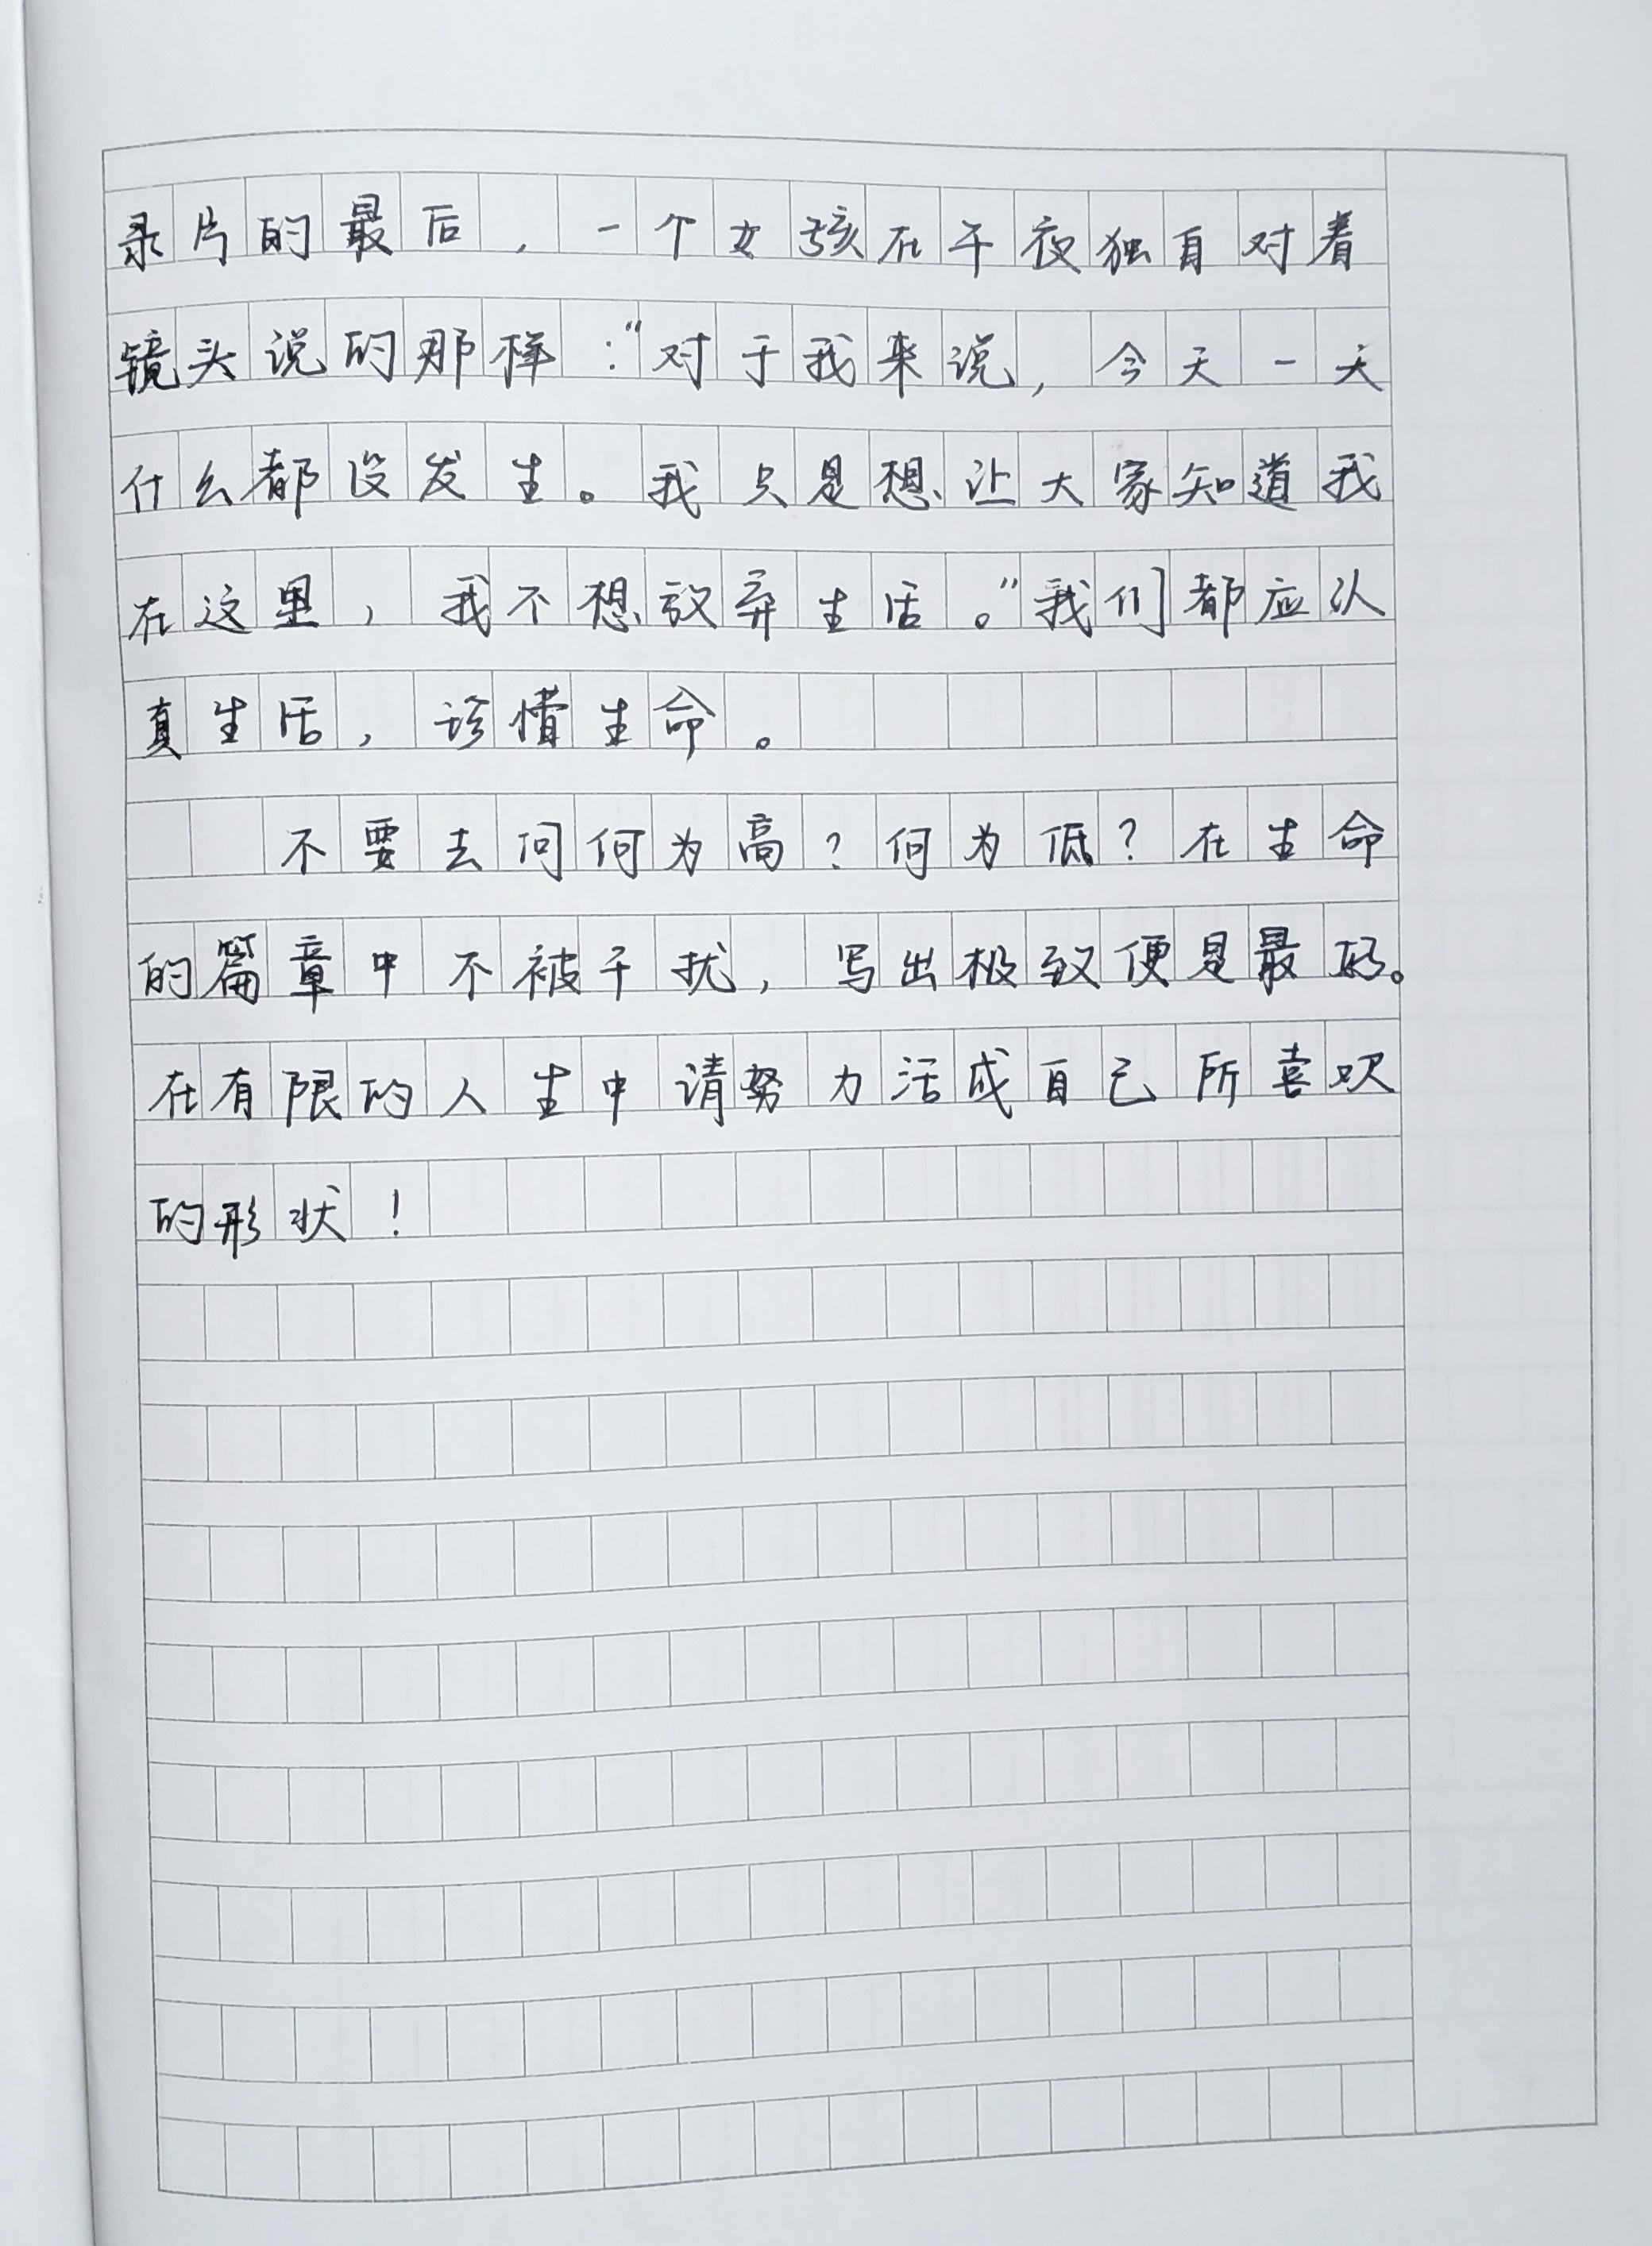 录片的最后，一个女孩在午夜独自对着
镜头说的那样：“对于我来说，今天一天
什么都没发生。我只是想让大家知道我
在这里，我不想放弃生活。”我们都应认
真生活，珍惜生命。
不要去问何为高？何为低？在生命
的篇章中不被干扰，写出极致便是最好。
在有限的人生中请努力活成自己所喜欢
的形状！